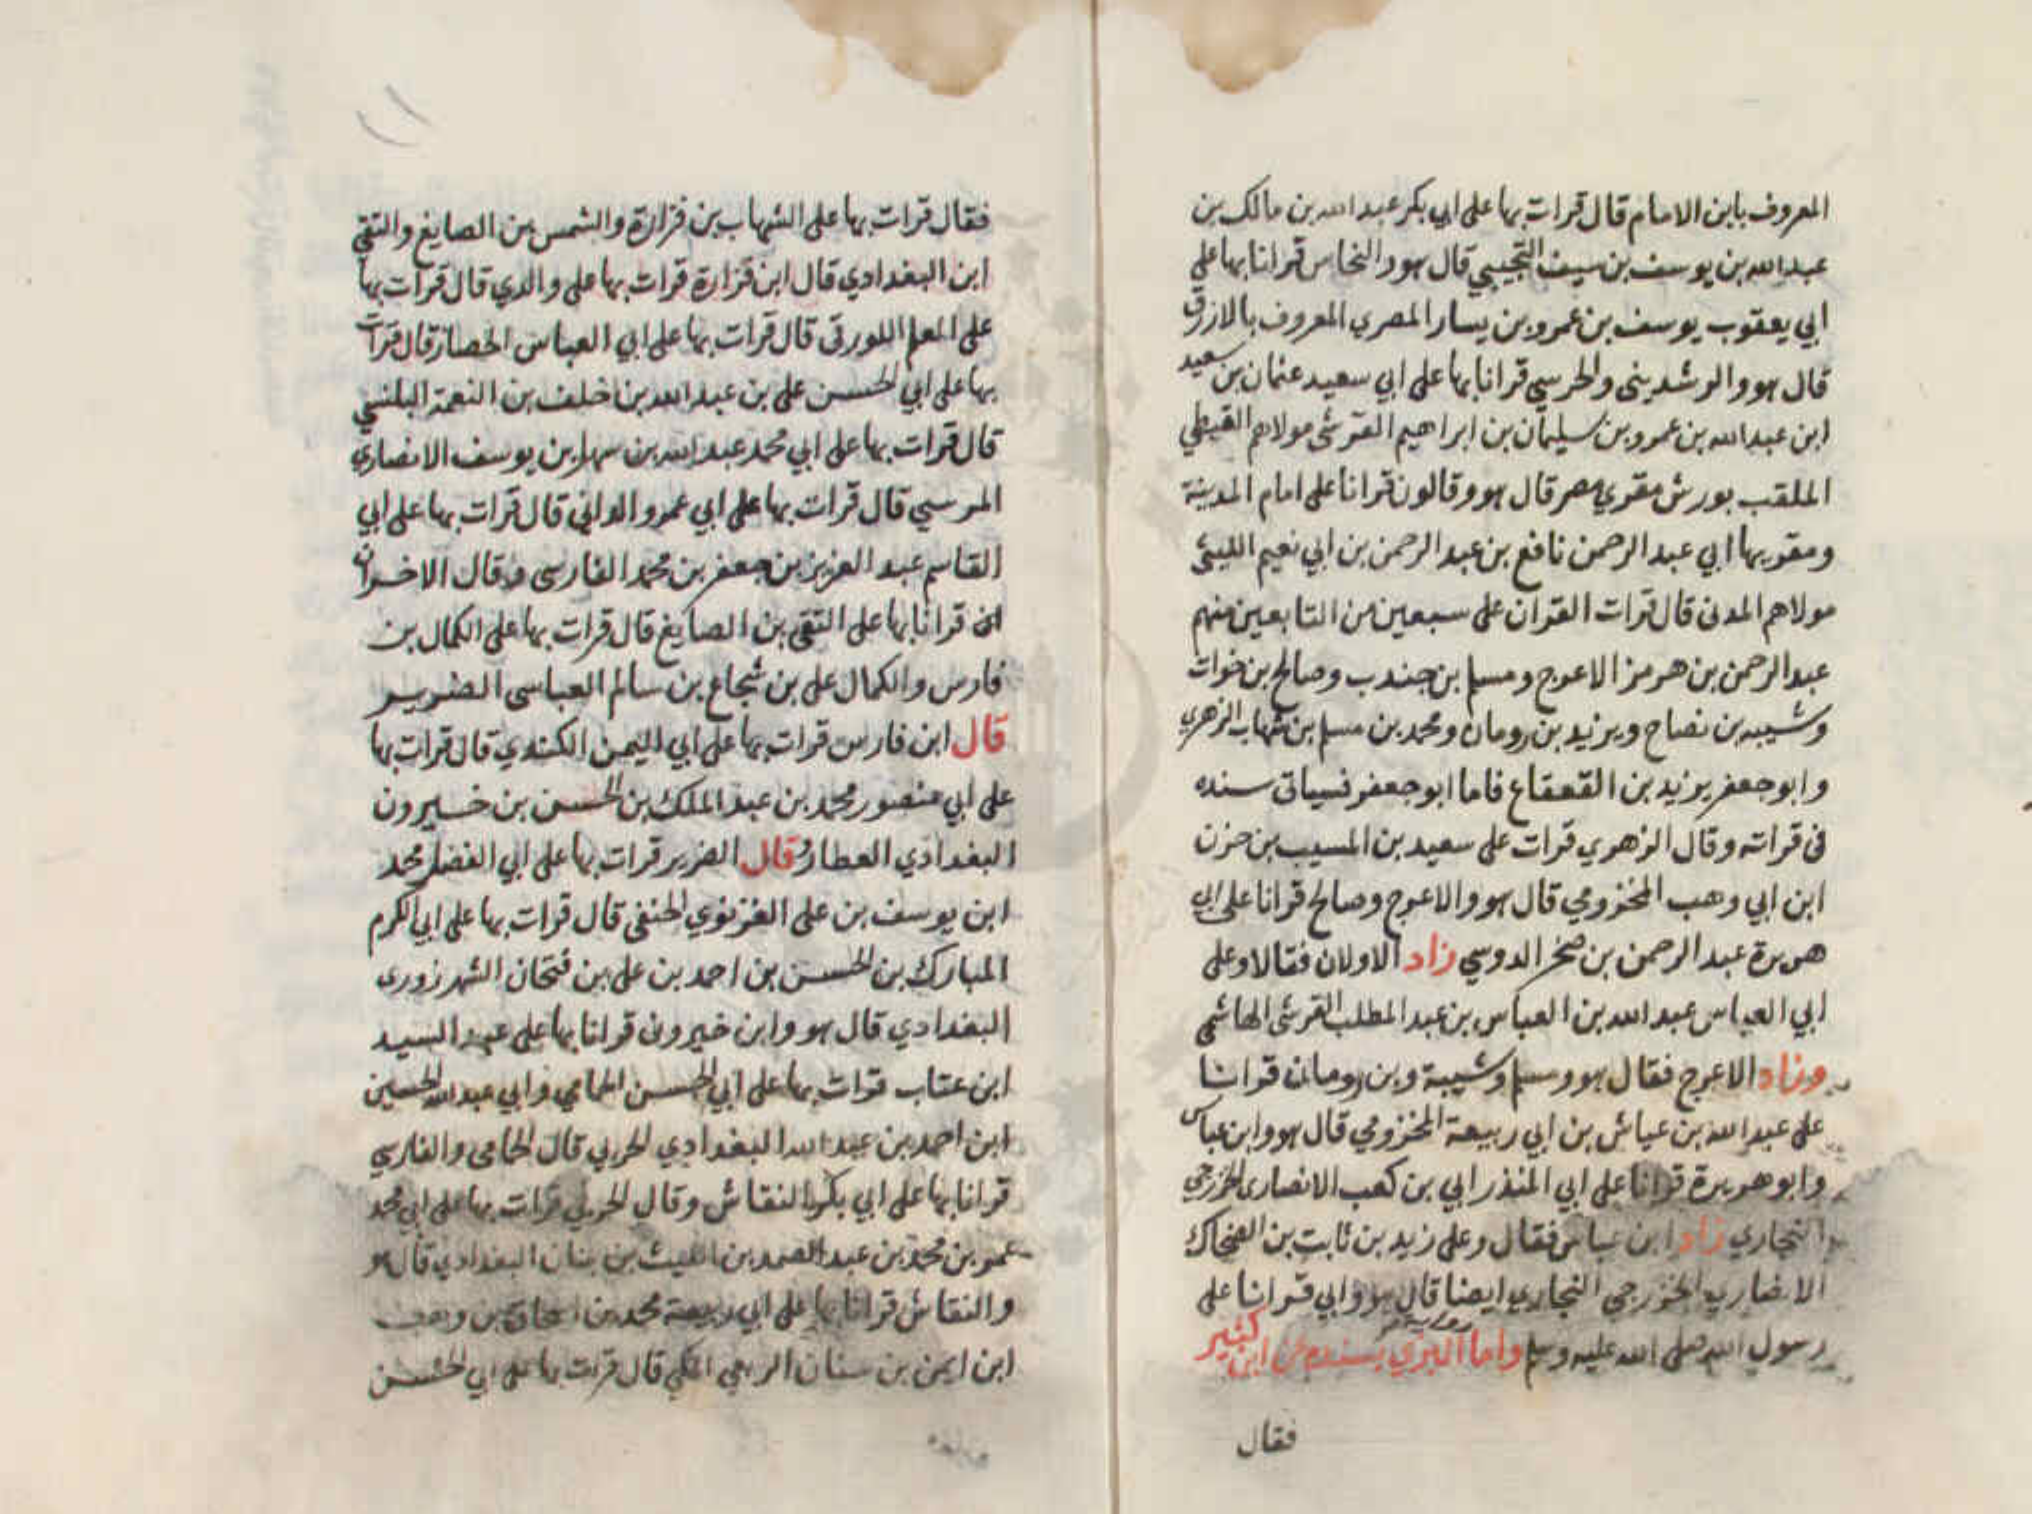 المعروف بابن الامام قال قرات بها على ابي بكر عبد الله بن مالك بن
عبد الله بن يوسف بن سيف التجيبي قال هو والنحاس قرانا بها على
ابي يعقوب يوسف بن عمرو بن يسار المصري المعروف بالازرق
قال هو والرشديني والحرسي قرانا بها على ابي سعيد عثمان بن سعيد
ابن عبد الله بن عمرو بن سليمان بن ابراهيم القرشي مولاهم القبطي
الملقب بورش مقري مصر قال هو وقالون قرانا على امام المدينة
ومقريها ابي عبد الرحمن نافع بن عبد الرحمن بن ابي نعيم الليثي
مولاهم المدني قال قرات القران على سبعين من التابعين منهم
عبد الرحمن بن هرمز الاعرج ومسلم بن جندب وصالح بن خوات
وشيبه بن نصاح ويزيد بن رومان ومحمد بن مسلم بن شهاب الزهري
وابو جعفر يزيد بن القعقاع فاما ابو جعفر فسياتي سنده
في قراته وقال الزهري قرات على سعيد بن المسيب بن حزن
ابن ابي وهب المخزومي قال هو والاعرج وصالح قرانا على ابي
هريرة عبد الرحمن بن صخر الدوسي زاد الاولان فقالا وعلى
ابي العباس عبد الله بن العباس بن عبد المطلب القرشي الهاشمي
وزاد الاعرج فقال هو ومسلم وشيبة وبن رومان قرانا
على عبد الله بن عياش بن ابي ربيعة المخزومي قال هو وابن عباس
وابو هريرة قرانا على ابي المنذر ابي بن كعب الانصاري الخزرجي
النجاري زاد ابن عباس فقال وعلى زيد بن ثابت بن الضحاك
الانصاري الخزرجي النجاري ايضا قال هو وابي قرانا على
رسول الله صلى الله عليه وسلم واما البزي بسنده عن ابن كثير
فقال
١١
فقال قرات بها على الشهاب بن فزارة والشمس بن الصايغ والتقي
ابن البغدادي قال ابن فزارة قرات بها على والدي قال قرات بها
على المعلم اللورقي قال قرات بها على ابي العباس الحصار قال قرات
بها على ابي الحسن علي بن عبد الله بن خلف بن النعمة البلنسي
قال قرات بها على ابي محمد عبد الله بن سهل بن يوسف الانصاري
المرسي قال قرات بها على ابي عمرو الداني قال قرات بها على ابي
القاسم عبد العزيز بن جعفر بن محمد الفارسي وقال الاخران
قرانا بها على التقي بن الصايغ قال قرات بها على الكمال بن
فارس والكمال علي بن شجاع بن سالم العباسي الضرير
قال ابن فارس قرات بها على ابي اليمن الكندي قال قرات بها
على ابي منصور محمد بن عبد الملك بن الحسن بن خيرون
البغدادي العطار وقال الضرير قرات بها على ابي الفضل محمد
ابن يوسف بن علي الغزنوي الحنفي قال قرات بها على ابي الكرم
المبارك بن الحسن بن احمد بن علي بن فتحان الشهرزوري
البغدادي قال هو وابن خيرون قرانا بها على عبد السيد
ابن عتاب قرات بها على ابي الحسن الحمامي وابي عبد الله الحسين
ابن احمد بن عبد الله البغدادي الحربي قال الحمامي والفارسي
قرانا بها على ابي بكر النقاش وقال الحربي قرات بها على ابي محمد
عمر بن محمد بن عبد الصمد بن الليث بن بنان البغدادي قال هو
والنقاش قرانا بها على ابي ربيعة محمد بن اسحاق بن وهب
ابن ايمن بن سنان الربعي المكي قال قرات بها على ابي الحسن